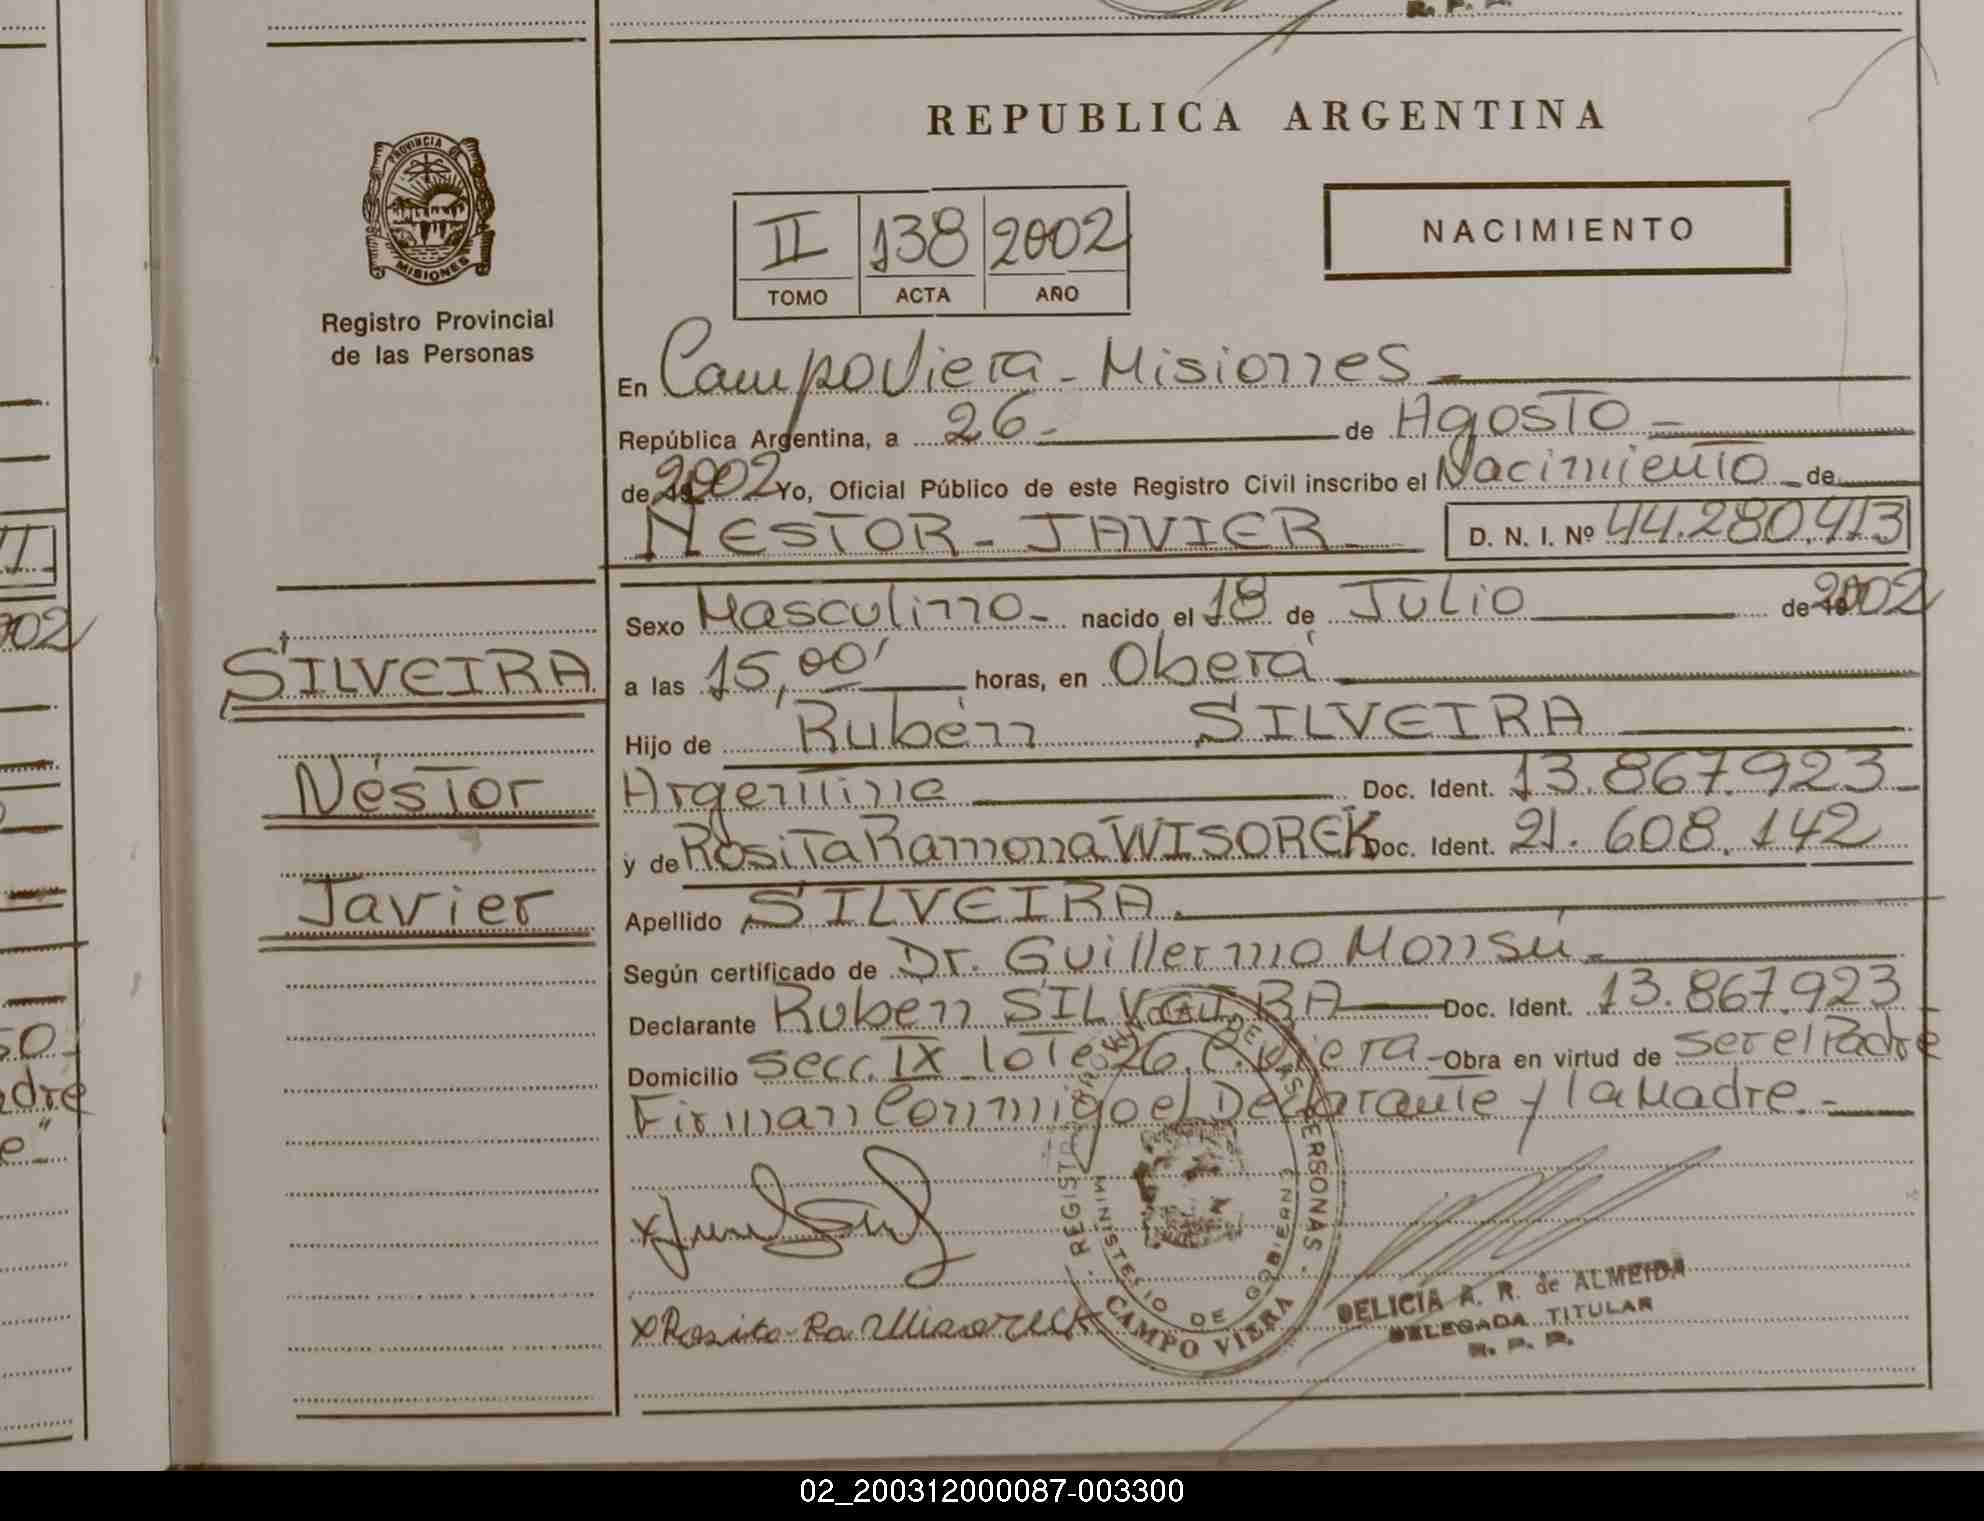 REPUBLICA ARGENTINA
PROVINCIA DE
MISIONES
Registro Provincial
de las Personas
II 138 2002
TOMO ACTA AÑO
NACIMIENTO
En Campo Viera - Misiones
República Argentina, a 26 - de Agosto -
de 2002 Yo, Oficial Público de este Registro Civil inscribo el Nacimiento de
NESTOR - JAVIER - D. N. I. Nº 44.280.413
Sexo Masculino - nacido el 18 de Julio de 2002
a las 15,00' horas, en Oberá
Hijo de Rubén SILVEIRA
Argentina Doc. Ident. 13.867.923
y de Rosita Ramona WISOREK Doc. Ident. 21.608.142
Apellido SILVEIRA.
Según certificado de Dr. Guillermo Monsú -
Declarante Ruben SILVEIRA Doc. Ident. 13.867.923
Domicilio secc. IX lote 26. C. Viera - Obra en virtud de ser el Padre
Firman Conmigo el Declarante y la Madre. -
SILVEIRA
Néstor
Javier
REGISTRO PROVINCIAL DE LAS PERSONAS
MINISTERIO DE GOBIERNO
CAMPO VIERA
DELICIA A. R. de ALMEIDA
DELEGADA TITULAR
R. P. P.
x Rosita Ra Wisoreck
02_200312000087-003300